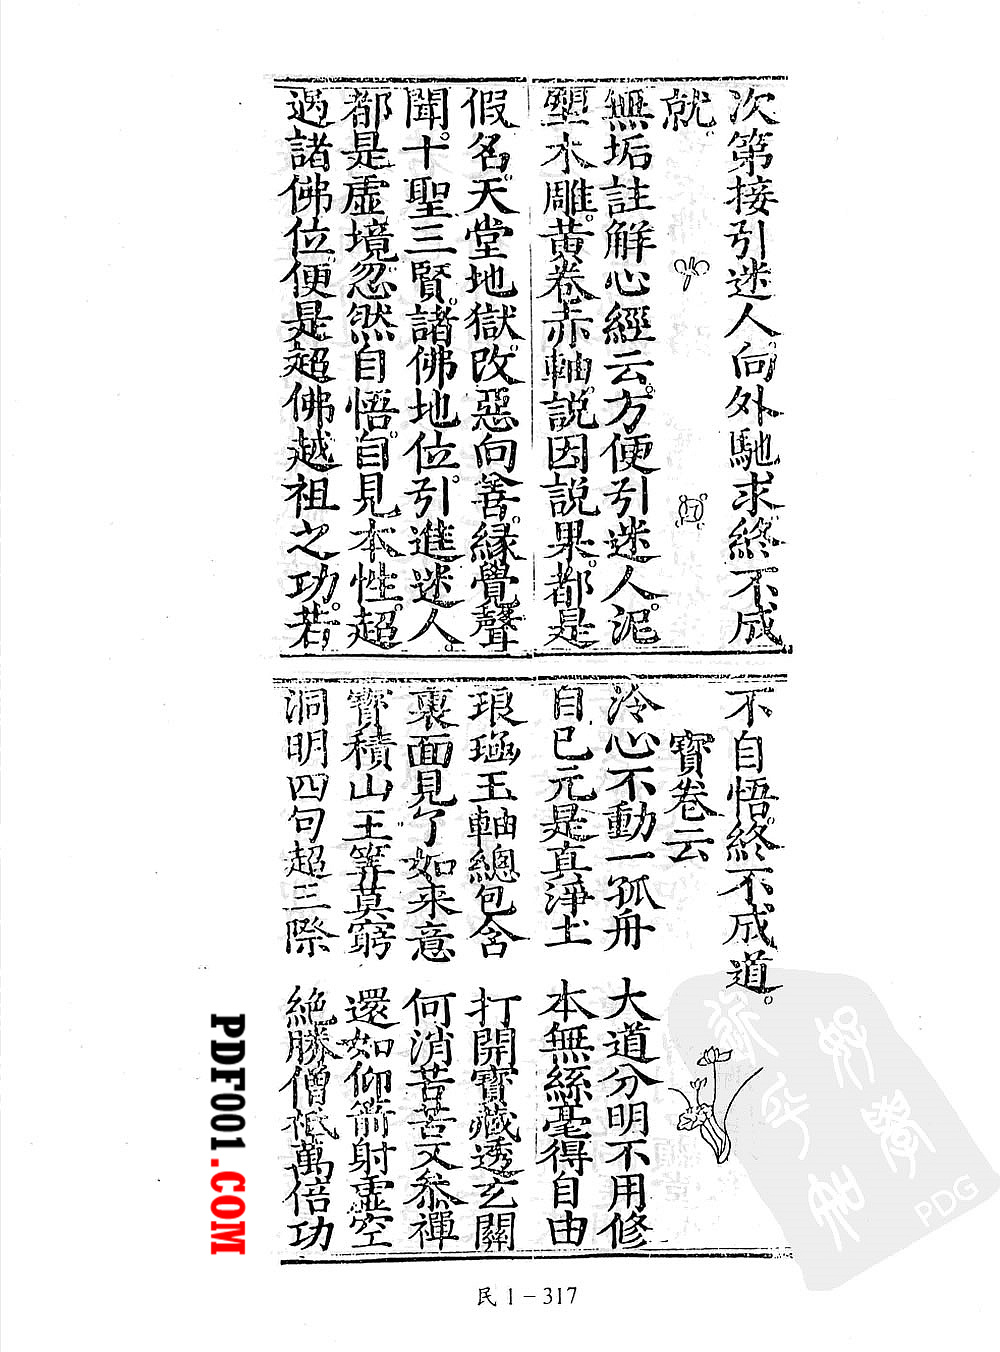 次第接引迷人向外馳求終不成
就。
無垢註解心經云。方便引迷人。泥
塑木雕。黄卷赤軸。説因説果。都是
假名。天堂地獄。改惡向善。緣覺聲
聞。十聖三賢。諸佛地位。引進迷人。
都是虛境。忽然自悟。自見本性。超
過諸佛位。便是超佛越祖之功。若
不自悟。終不成道。
寶卷云
冷心不動一孤舟 大道分明不用修
自巳元是真淨土 本無絲毫得自由
琅𤧚玉軸總包含 打開寶藏透玄關
裏面見了如来意 何消苦苦又叅禪
寳積山王筭莫窮 還如仰箭射虛空
洞明四句超三際 絶勝僧祇萬倍功
民 1 - 317
PDF001.COM
PDG